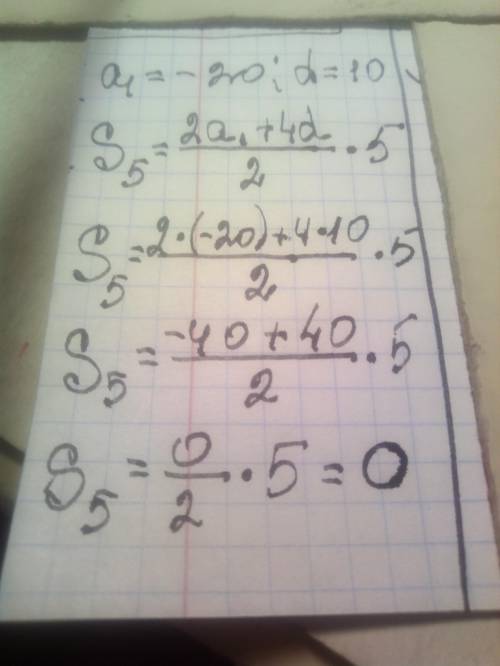 a₁ = -20; d = 10
S₅ = (2a₁ + 4d)/2 · 5
S₅ = (2·(-20) + 4·10)/2 · 5
S₅ = (-40 + 40)/2 · 5
S₅ = 0/2 · 5 = 0